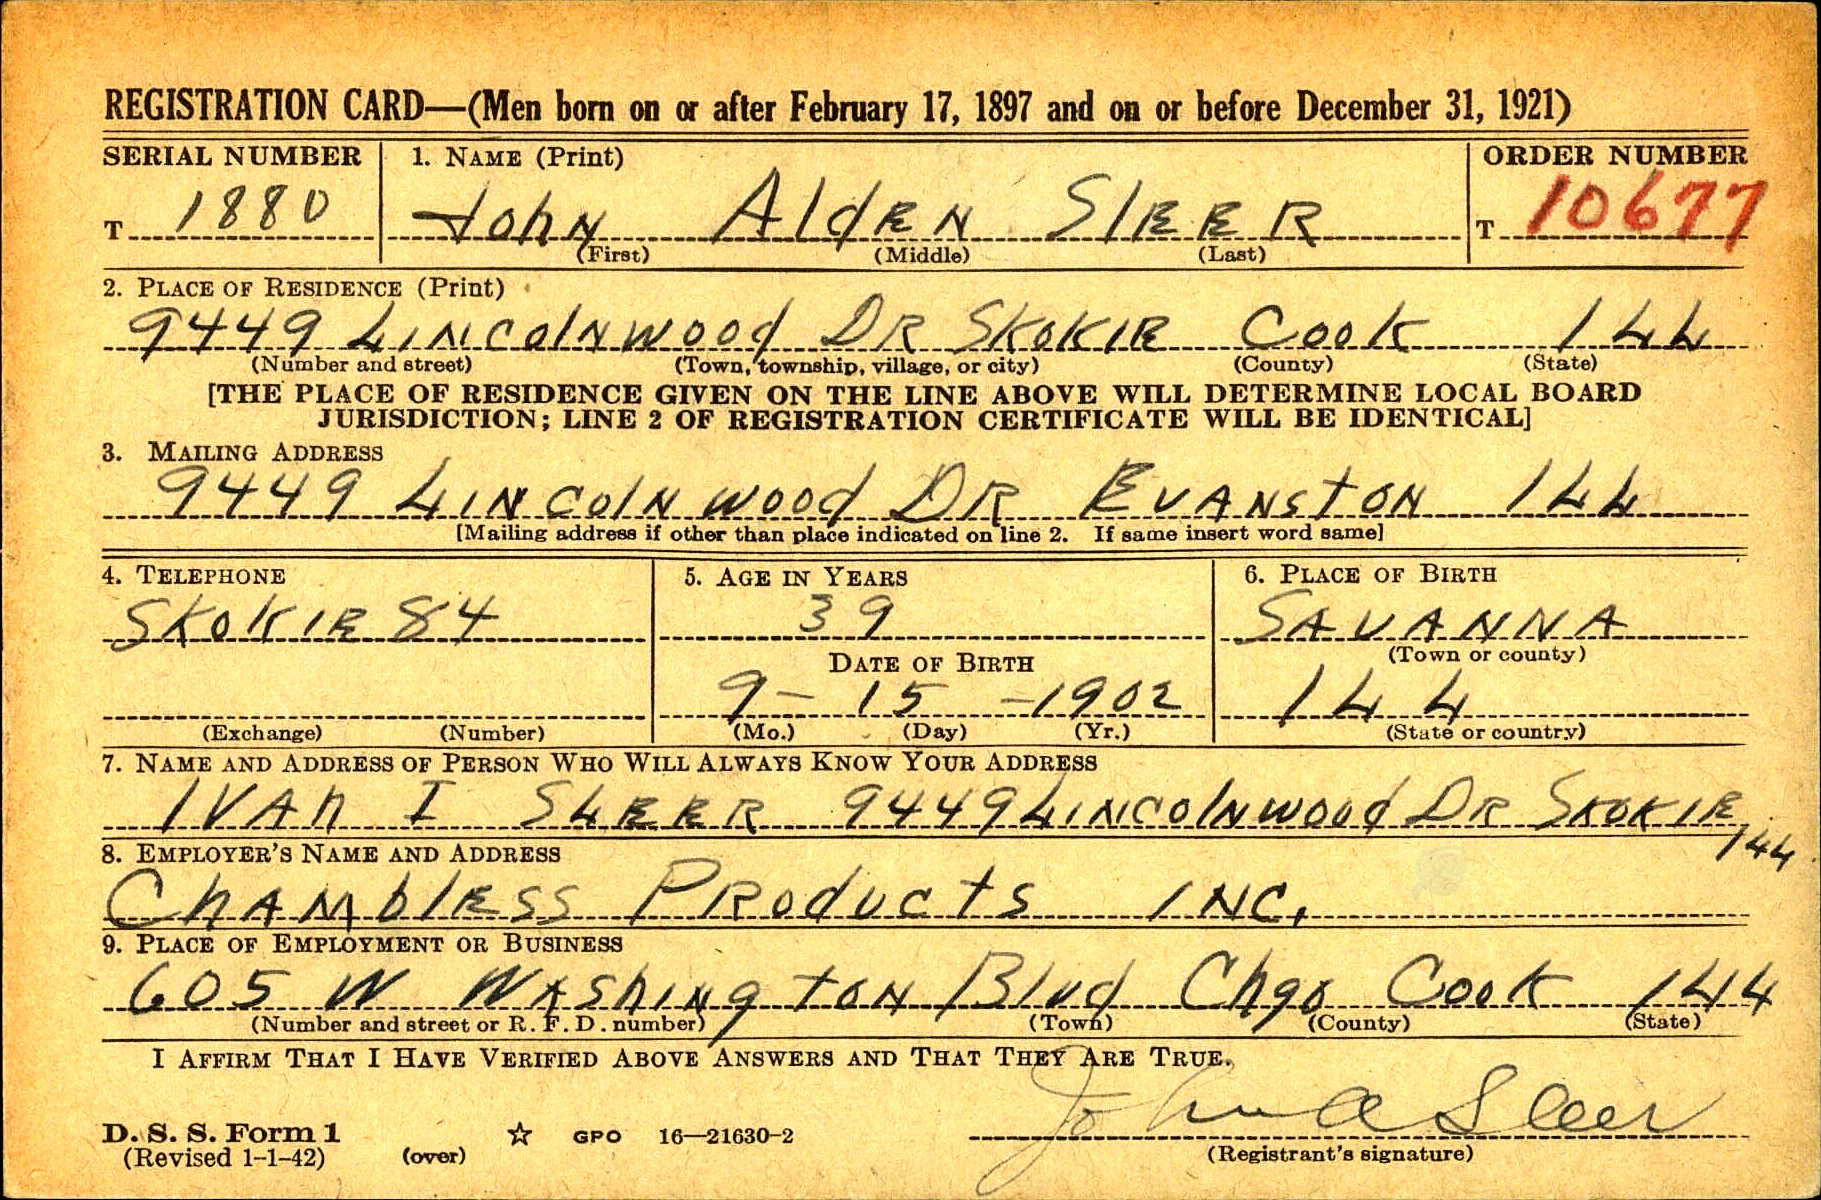 REGISTRATION CARD—(Men born on or after February 17, 1897 and on or before December 31, 1921)
SERIAL NUMBER 1. NAME (Print) ORDER NUMBER
T 1880 John Alden Sleer T 10677
(First) (Middle) (Last)
2. PLACE OF RESIDENCE (Print)
9449 Lincolnwood DR Skokie Cook ILL
(Number and street) (Town, township, village, or city) (County) (State)
[THE PLACE OF RESIDENCE GIVEN ON THE LINE ABOVE WILL DETERMINE LOCAL BOARD
JURISDICTION; LINE 2 OF REGISTRATION CERTIFICATE WILL BE IDENTICAL]
3. MAILING ADDRESS
9449 Lincolnwood DR Evanston ILL
[Mailing address if other than place indicated on line 2. If same insert word same]
4. TELEPHONE 5. AGE IN YEARS 6. PLACE OF BIRTH
Skokie 84 39 SAVANNA
(Town or county)
DATE OF BIRTH
9 - 15 - 1902 ILL
(Exchange) (Number) (Mo.) (Day) (Yr.) (State or country)
7. NAME AND ADDRESS OF PERSON WHO WILL ALWAYS KNOW YOUR ADDRESS
IVAN I SLEER 9449 Lincolnwood DR Skokie
ILL
8. EMPLOYER'S NAME AND ADDRESS
Chambless Products INC.
9. PLACE OF EMPLOYMENT OR BUSINESS
605 W Washington Blvd Chgo Cook ILL
(Number and street or R. F. D. number) (Town) (County) (State)
I AFFIRM THAT I HAVE VERIFIED ABOVE ANSWERS AND THAT THEY ARE TRUE.
John A Sleer
D. S. S. Form 1
(Revised 1-1-42) (over) ☆ GPO 16—21630-2 (Registrant's signature)